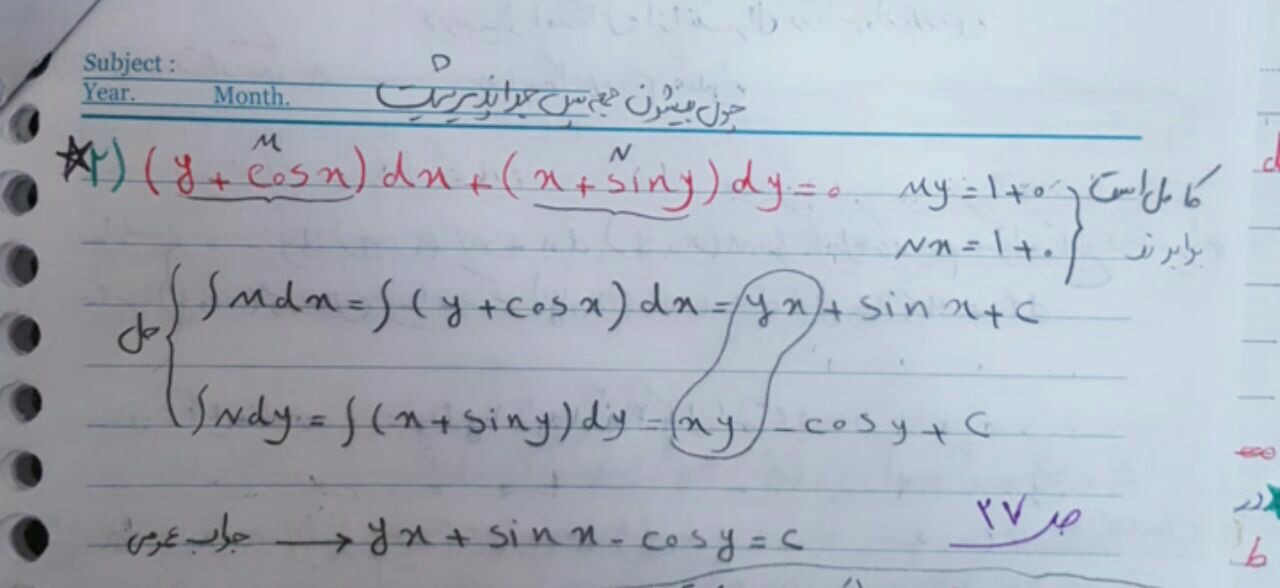 Subject :
D
Year. Month. چون بینشون جمع س جداپذیر نیست
★۲) (y + cosx) dx + (x + siny) dy = 0
M N
My = 1 + 0
Nx = 1 + 0
کامل است
برابرند
حل
∫Mdx = ∫(y + cosx) dx = yx + sinx + c
∫Ndy = ∫(x + siny) dy = xy - cosy + c
جواب عمومی → yx + sinx - cosy = c
ص ۲۷
در
b